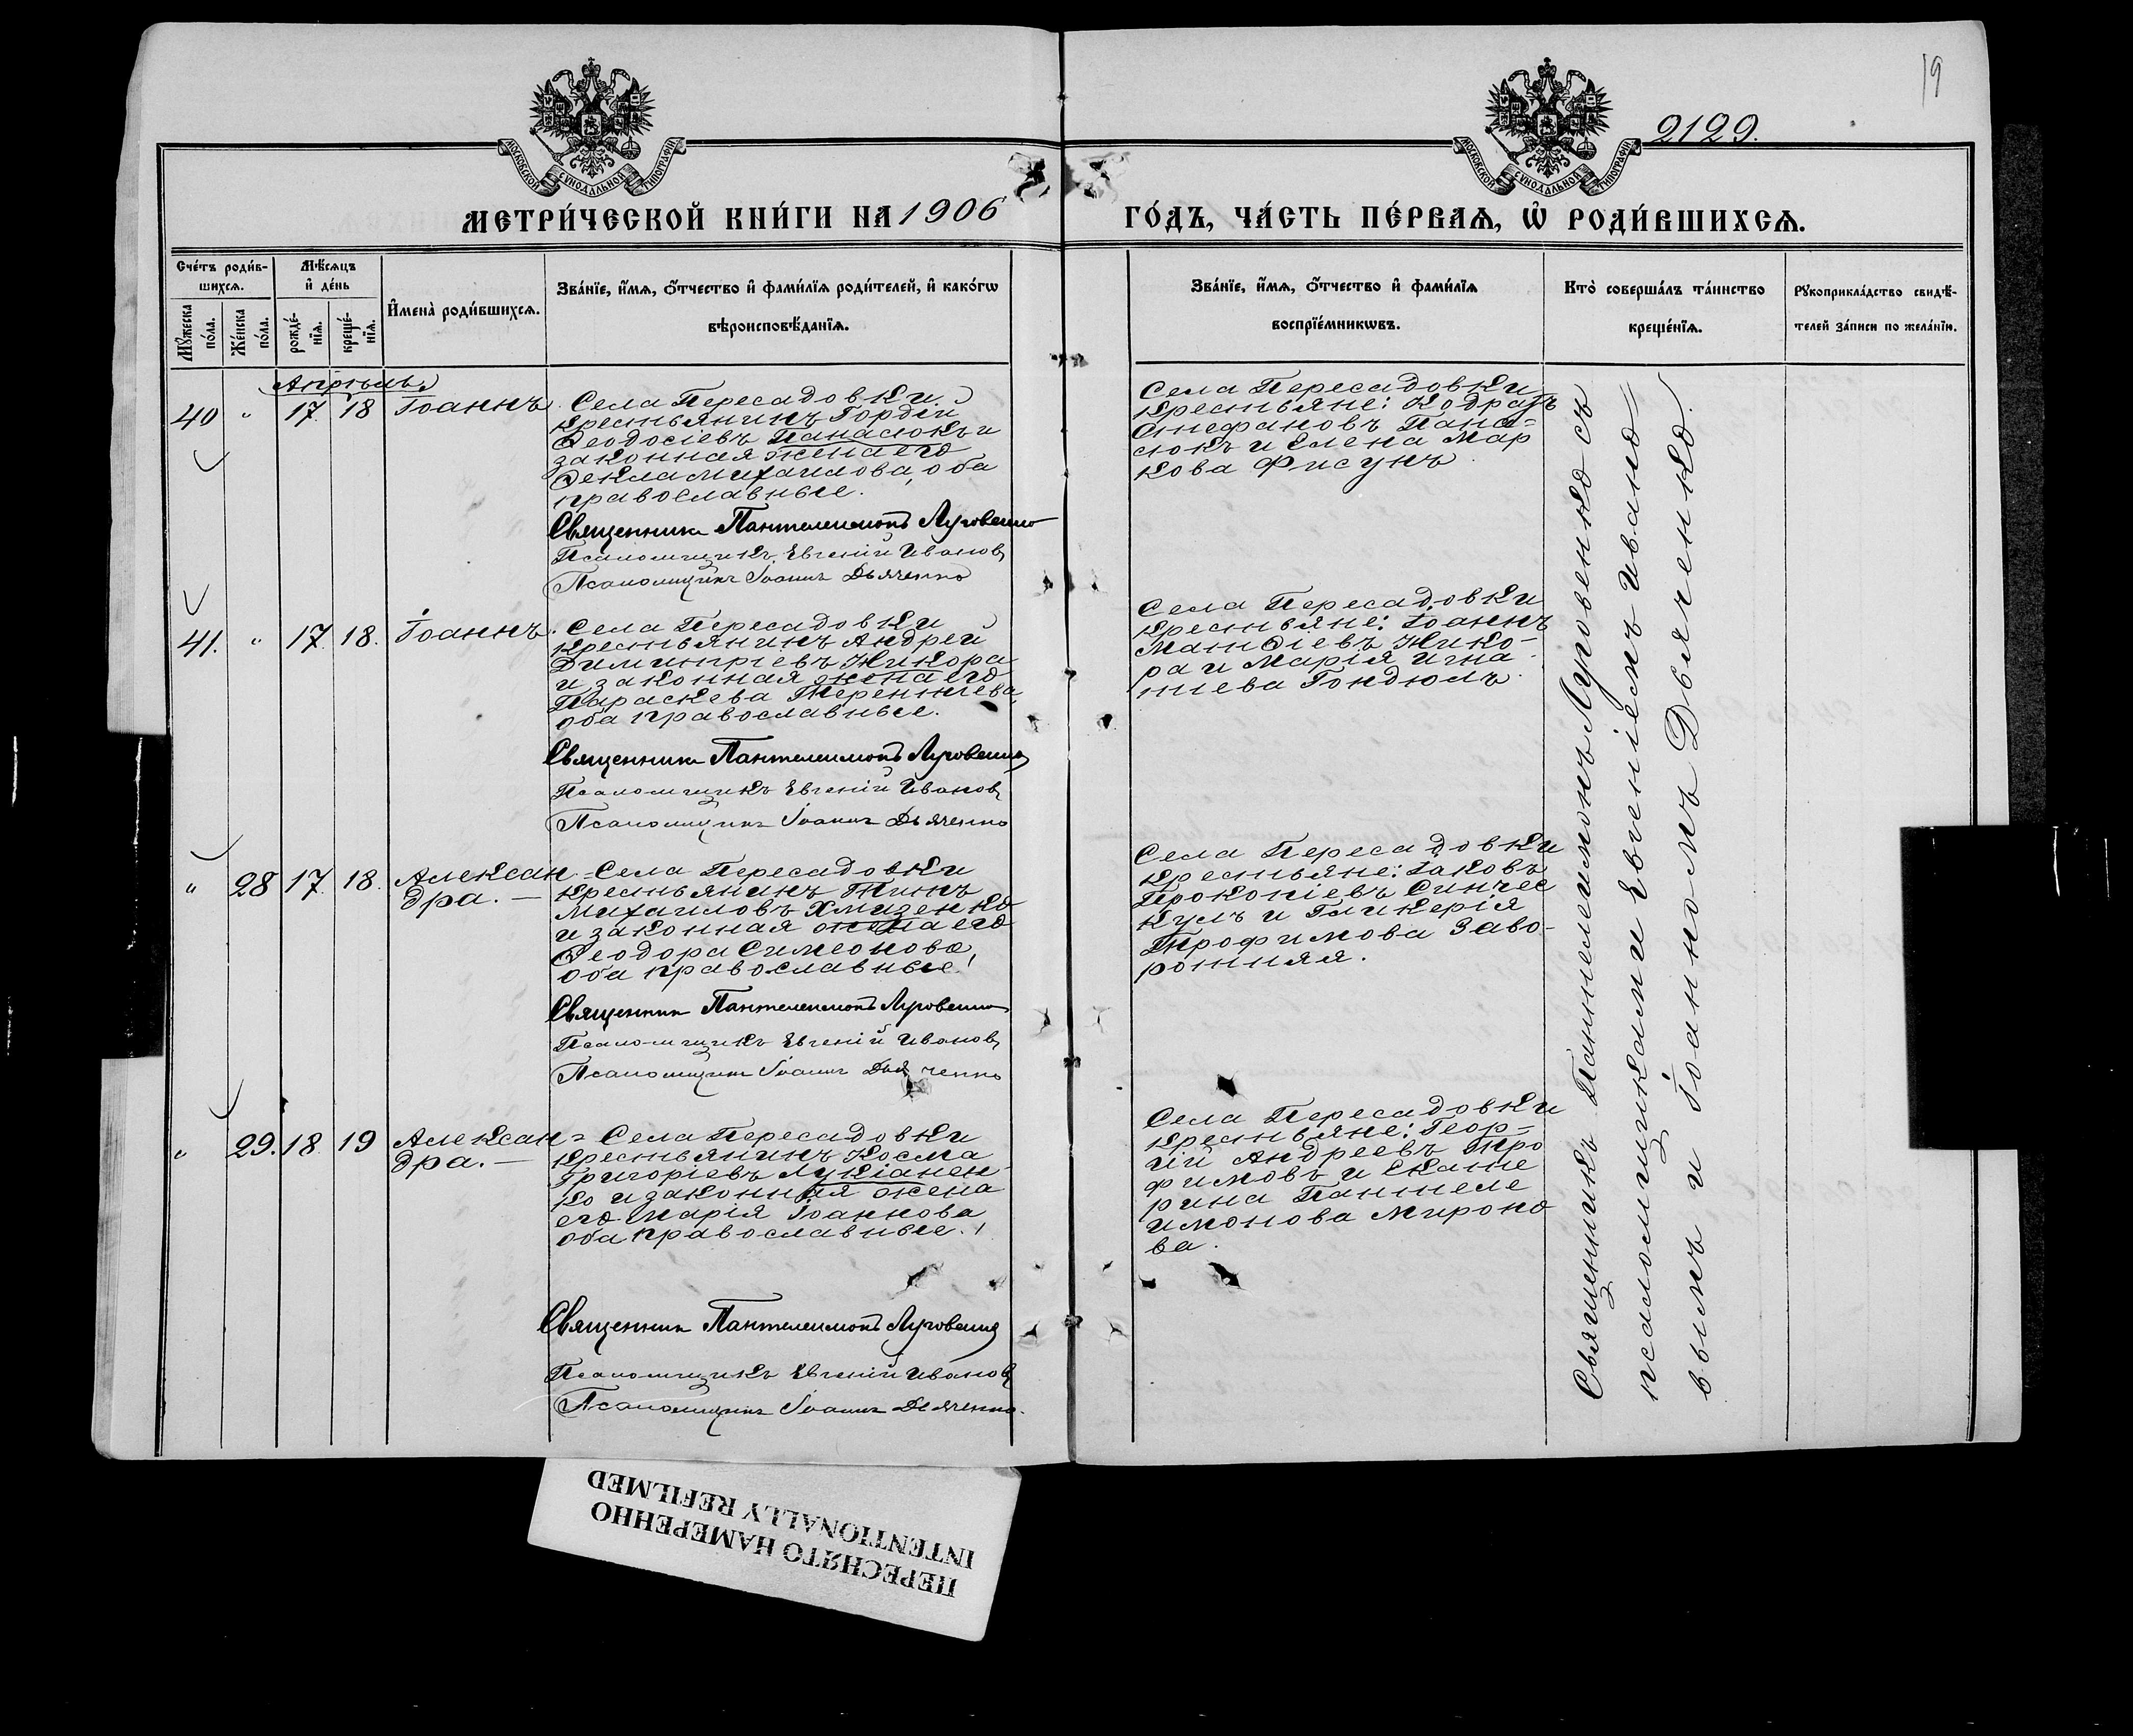 19
2129.
МОСКОВСКОЙ СѴНОДАЛЬНОЙ ТИПОГРАФІИ
МОСКОВСКОЙ СѴНОДАЛЬНОЙ ТИПОГРАФІИ
МЕТРИ́ЧЕСКОЙ КНИ́ГИ НА 1906 ГО́ДЪ, ЧА́СТЬ ПЕ́РВАѦ, Ѡ҆ РОДИ́ВШИХСѦ.
Сче́тъ роди́в-
шихсѧ.
Мꙋ́жеска по́ла.
Же́нска по́ла.
Мѣ́сѧцъ
и҆ де́нь
рожде́-
нїѧ.
креще́-
нїѧ.
И҆мена̀ роди́вшихсѧ.
Зва́нїе, и҆́мѧ, ѻ҆́тчество и҆ фами́лїѧ роди́телей, и҆ како́гѡ
вѣроисповѣ́данїѧ.
Зва́нїе, и҆́мѧ, ѻ҆́тчество и҆ фами́лїѧ
воспрїе́мникѡвъ.
Кто̀ соверша́лъ та́инство
креще́нїѧ.
Рꙋкоприкла́дство свидѣ́-
телей за́писи по жела́нїю.
Апрѣль.
40 " 17. 18 Іоаннъ.
Села Пересадовки
крестьянинъ Гордій
Ѳеодосіевъ Панасюкъ и
законная жена его
Ѳекла Михаилова, оба
православные.
Священникъ Пантелеимонъ Луговенко
Псаломщикъ Евгеній Ивановъ
Псаломщикъ Іоаннъ Дьяченко
Села Пересадовки
крестьяне: Кодратъ
Стефановъ Пана-
сюкъ и Елена Мар
кова Фисунъ.
41. " 17. 18. Іоаннъ.
Села Пересадовки
крестьянинъ Андрей
Димитріевъ Жикора
и законная жена его
Параскева Терентіева,
оба православные.
Священникъ Пантелеимонъ Луговенко
Псаломщикъ Евгеній Ивановъ
Псаломщикъ Іоаннъ Дьяченко
Села Пересадовки
крестьяне: Іоаннъ
Матѳіевъ Жико-
ра и Марія Игна-
тіева Гондюлъ.
" 28 17. 18. Алексан-
дра. —
Села Пересадовки
крестьянинъ Титъ
Михаиловъ Хмизенко
и законная жена его
Ѳеодора Симеонова,
оба православные.
Священникъ Пантелеимонъ Луговенко
Псаломщикъ Евгеній Ивановъ
Псаломщикъ Іоаннъ Дьяченко
Села Пересадовки
крестьяне: Іаковъ
Прокопіевъ Синчес
кулъ и Гликерія
Трофимова Заво-
ротняя.
" 29. 18. 19 Алексан=
дра. —
Села Пересадовки
крестьянинъ Косма
Григоріевъ Лукіанен-
ко и законная жена
его Марія Іоаннова
оба православные.
Священникъ Пантелеимонъ Луговенко
Псаломщикъ Евгеній Ивановъ
Псаломщикъ Іоаннъ Дьяченко.
Села Пересадовки
крестьяне: Геор-
гій Андреевъ Тро
фимовъ и Екате
рина Пантеле
имонова Мироно
ва.
Священникъ Пантелеимонъ Луговенко съ
псаломщиками Евгеніемъ Ивано=
вымъ и Іоанномъ Дьяченко.
ПЕРЕСНЯТО НАМЕРЕННО
INTENTIONALLY REFILMED